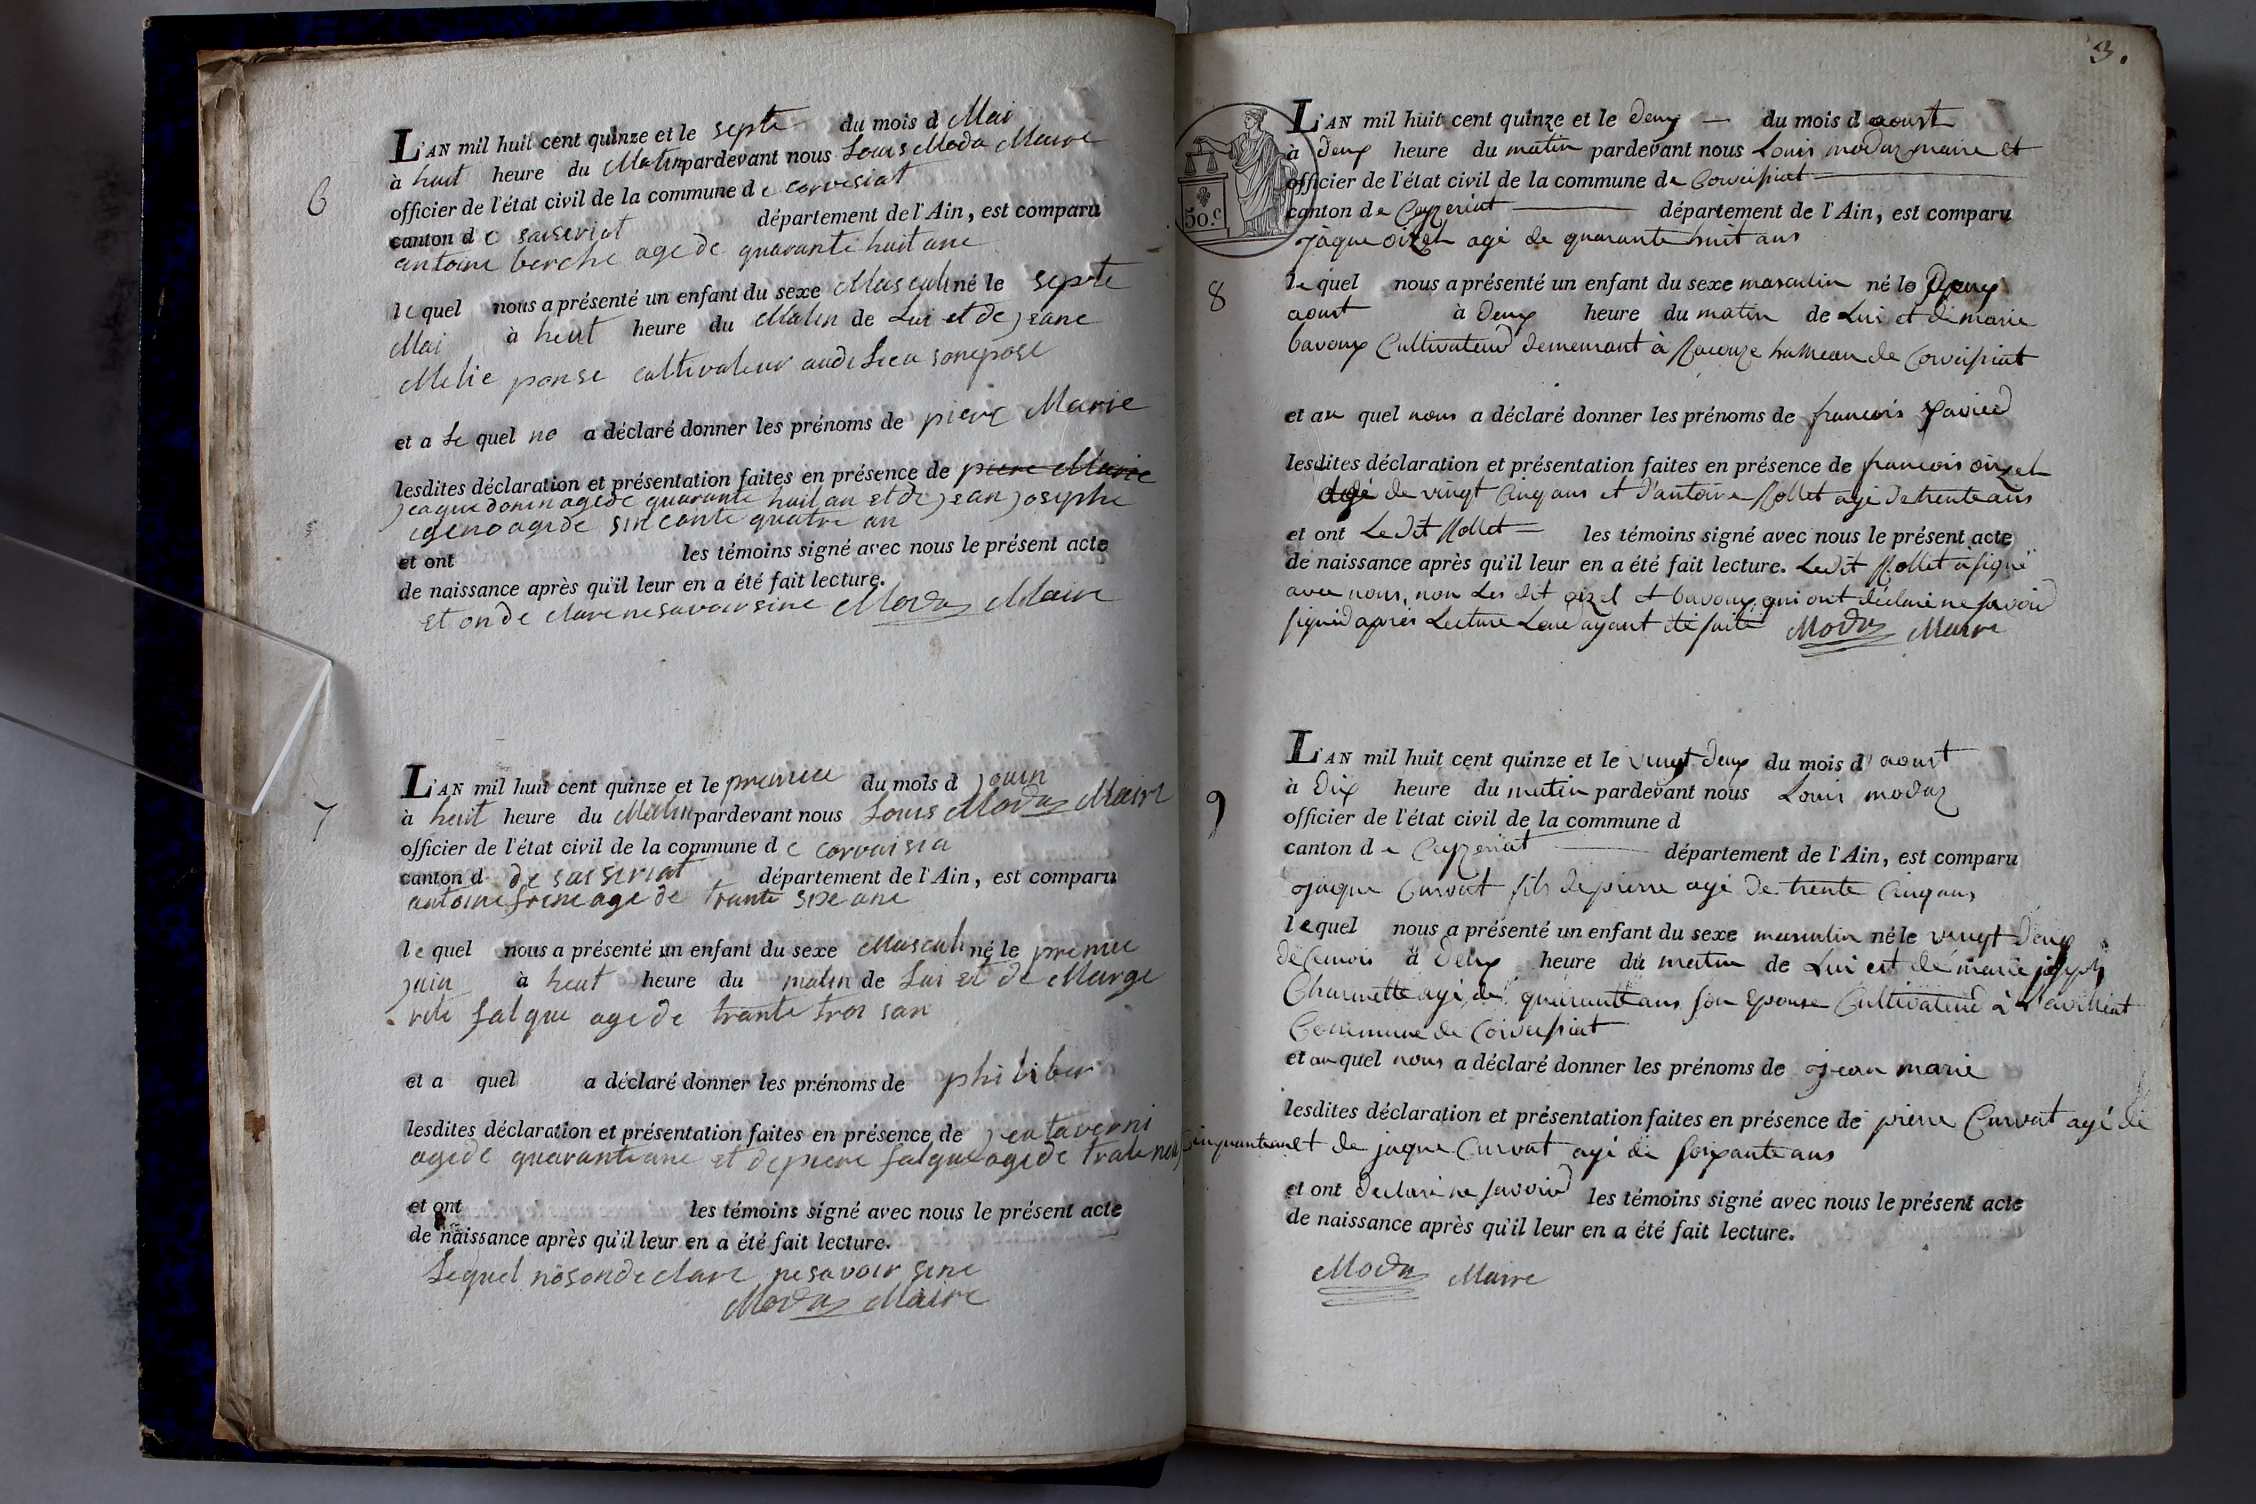 6
L'AN mil huit cent quinze et le septe du mois d Mai
à huit heure du Matin pardevant nous Louis Moda Maire
officier de l'état civil de la commune d e corvesiat
canton d e saiseriat département de l'Ain, est comparu
antoine berche age de quarante huit ane
le quel nous a présenté un enfant du sexe Masculi né le septe
Mai à heut heure du Matin de Lui et de jeane
Melie ponse cultivateur
et a Le quel no a déclaré donner les prénoms de piere Marie
lesdites déclaration et présentation faites en présence de piere Marie
agede quarante huit an et de jean josephe
agede sincante quatre an
et ont les témoins signé avec nous le présent acte
de naissance après qu'il leur en a été fait lecture.
et on de clare ne savoir sine Modaz Maire
7
L'AN mil huit cent quinze et le premiee du mois d jouin
à heut heure du Matin pardevant nous Louis Modaz Maire
officier de l'état civil de la commune d e corvaisia
canton d de saiseriat département de l'Ain, est comparu
antoine frene age de trante sixe ane
le quel nous a présenté un enfant du sexe Masculi né le premie
juin à heut heure du matin de Lui et de Marge
rite falque agede trante troi san
et a quel a déclaré donner les prénoms de philiber
lesdites déclaration et présentation faites en présence de jea taverni
agede quarante ane et de piere falque agede trate neuf
et ont les témoins signé avec nous le présent acte
de naissance après qu'il leur en a été fait lecture.
Lequel nos on de clare ne savoir sine
Modaz Maire
3.
50.c
L'AN mil huit cent quinze et le deux du mois d aoust
à deux heure du matin pardevant nous Louis modaz maire et
officier de l'état civil de la commune de Corveissiat
canton de Ceyzeriat département de l'Ain, est comparu
jaque oizel agé de quarante huit ans
8
le quel nous a présenté un enfant du sexe masculin né le Deux
aoust à deux heure du matin de Lui et de marie
bavoux Cultivateur demeurant à Racouze hameau de Corveissiat
et au quel nous a déclaré donner les prénoms de francois xavier
lesdites déclaration et présentation faites en présence de francois oizel
agé de vingt cinq ans et d'antoine Rollet agé de trente ans
et ont Le dit Rollet les témoins signé avec nous le présent acte
de naissance après qu'il leur en a été fait lecture. Ledit Rollet à signé
avec nous, non Les dit oizel et bavoux qui ont déclaré ne savoir
signer après Lecture Leur ayant été faite Modaz Maire
9
L'AN mil huit cent quinze et le vingt deux du mois d'aoust
à dix heure du matin pardevant nous Louis modaz
officier de l'état civil de la commune d
canton de Ceyzeriat département de l'Ain, est comparu
jaque Curvat fils de pierre agé de trente cinq ans
le quel nous a présenté un enfant du sexe masculin né le vingt deux
de ce mois à deux heure du matin de Lui et de marie joseph
Charnette agé de quarante ans son epouse Cultivateur à
Commune de Corveissiat
et au quel nous a déclaré donner les prénoms de jean marie
lesdites déclaration et présentation faites en présence de pierre Curvat agé de
cinquante ans et de jaque Curvat agé de soixante ans
et ont declaré ne savoir les témoins signé avec nous le présent acte
de naissance après qu'il leur en a été fait lecture.
Modaz Maire